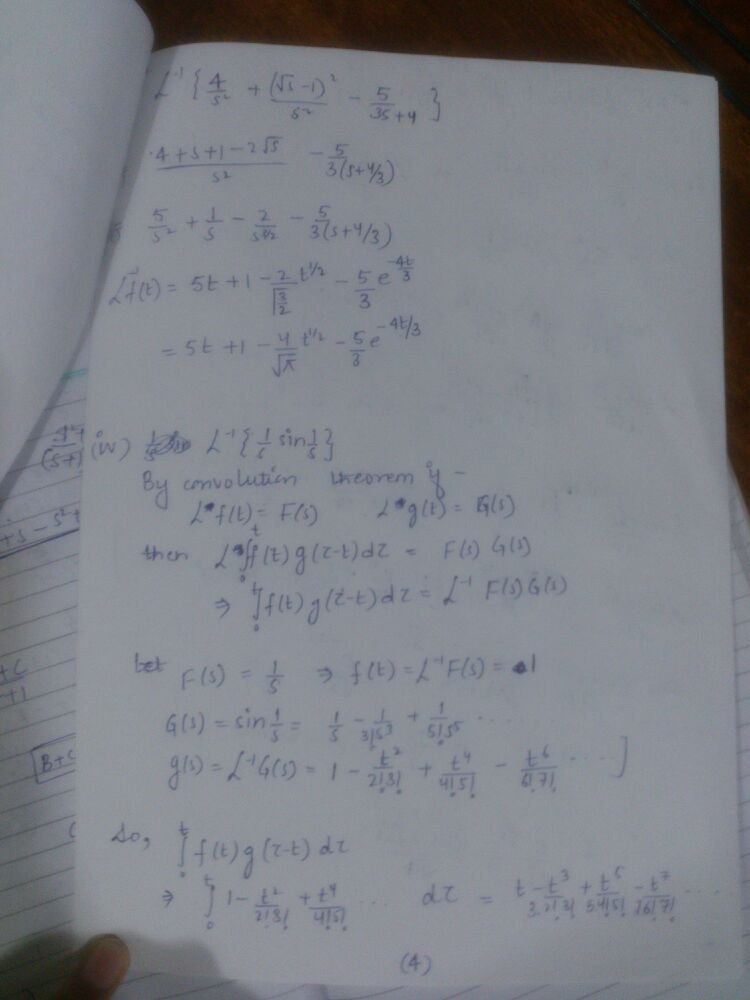 L⁻¹ { 4/s² + (√s - 1)²/s² - 5/(3s+4) }
4+s+1-2√s / s² - 5/3(s+4/3)
5/s² + 1/s - 2/s^(3/2) - 5/3(s+4/3)
L⁻¹f(t) = 5t + 1 - 2/Γ(3/2) t^(1/2) - 5/3 e^(-4t/3)
= 5t + 1 - 4/√π t^(1/2) - 5/3 e^(-4t/3)
(iv) L⁻¹ { 1/s sin 1/s }
By convolution theorem if -
L f(t) = F(s) L g(t) = G(s)
then L ∫₀ᵗ f(t) g(τ-t) dτ = F(s) G(s)
⇒ ∫₀ᵗ f(t) g(τ-t) dτ = L⁻¹ F(s) G(s)
let F(s) = 1/s ⇒ f(t) = L⁻¹F(s) = 1
G(s) = sin 1/s = 1/s - 1/3!s³ + 1/5!s⁵ ....
g(s) = L⁻¹G(s) = 1 - t²/2!3! + t⁴/4!5! - t⁶/6!7! .... ]
So, ∫₀ᵗ f(t) g(τ-t) dτ
⇒ ∫₀ᵗ 1 - t²/2!3! + t⁴/4!5! ... dτ = t - t³/3.2!3! + t⁵/5.4!5! - t⁷/7.6!7! ....
(4)
4²+
(s+1)
+s - s²+
+c
+1
B+C